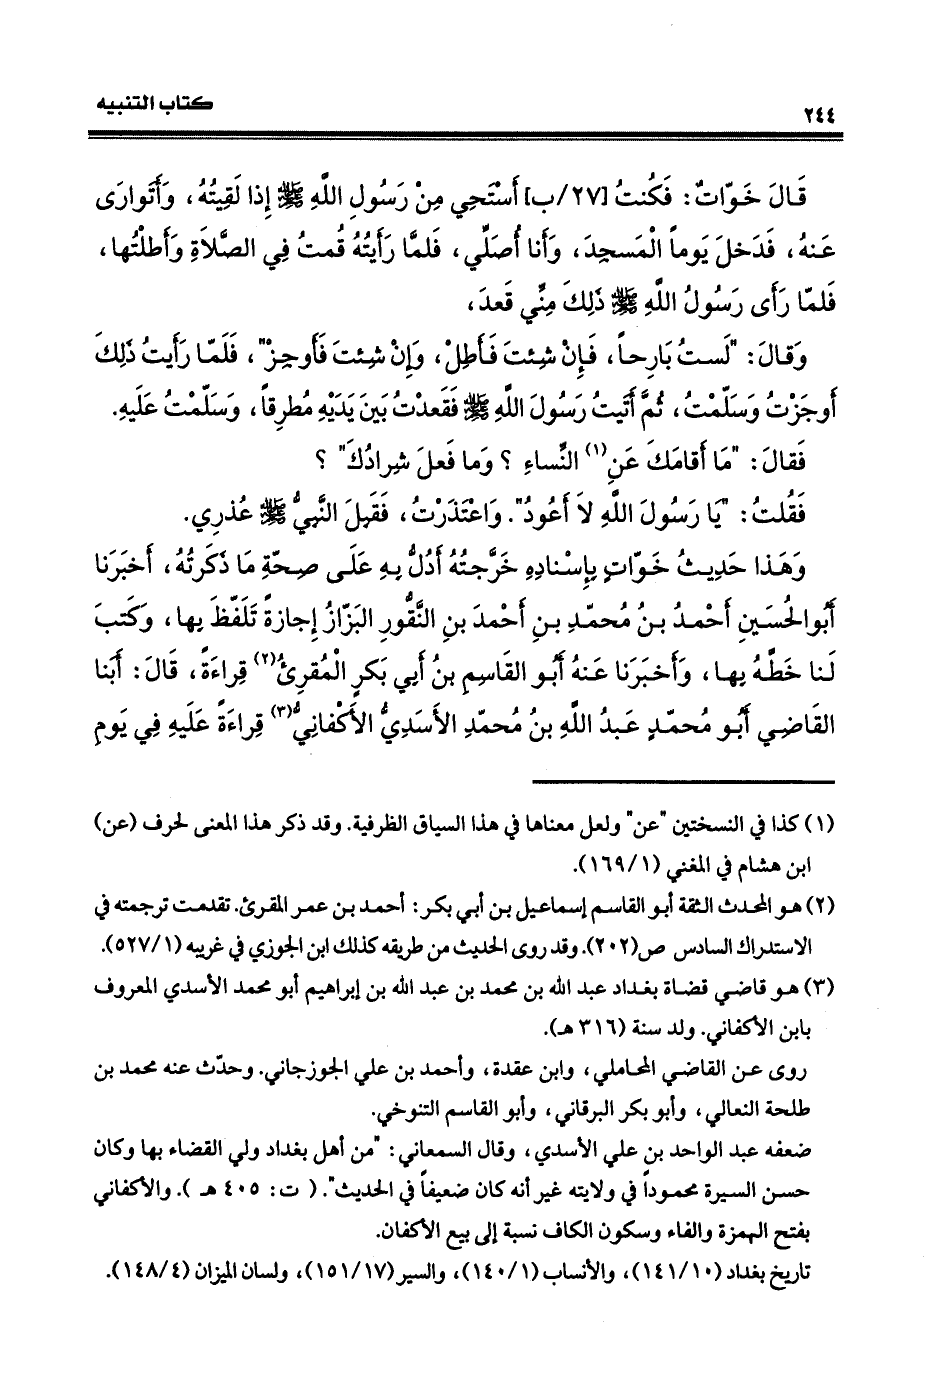 كتاب التنبيه
٢٤٤
قَالَ خَوّاتٌ: فَكُنتُ [٢٧/ب] أَسْتَحِي مِنْ رَسُولِ اللَّهِ ﷺ إِذا لَقِيتُهُ، وَأَتوارَى
عَنهُ، فَدَخلَ يَوماً الْمَسجِدَ، وَأَنا أُصَلِّي، فَلمَّا رَأَيتُهُ قُمتُ فِي الصَّلاَةِ وَأَطلْتُها،
فَلمّا رَأَى رَسُولُ اللَّهِ ﷺ ذَلِكَ مِنِّي قَعدَ،
وَقالَ: "لَستُ بَارِحاً، فَإِنْ شِئتَ فَأَطِلْ، وَإِنْ شِئتَ فَأَوجِزْ"، فَلَمّا رَأَيتُ ذَلِكَ
أَوجَزْتُ وَسَلّمْتُ، ثُمَّ أَتَيتُ رَسُولَ اللَّهِ ﷺ فَقَعدْتُ بَينَ يَدَيْهِ مُطرِقاً، وَسَلّمْتُ عَلَيهِ.
فَقالَ: "مَا أَقامَكَ عَنِ(١) النِّساءِ ؟ وَما فَعلَ شِرادُكَ" ؟
فَقُلتُ: "يَا رَسُولَ اللَّهِ لاَ أَعُودُ". وَاعْتَذَرْتُ، فَقَبِلَ النَّبِيُّ ﷺ عُذرِي.
وَهَذا حَدِيثُ خَوّاتٍ بِإِسْنادِهِ خَرَّجتُهُ أَدُلُّ بِهِ عَلَى صِحّةِ مَا ذَكَرتُهُ، أَخبَرَنا
أَبُوالحُسَينِ أَحْمدُ بنُ مُحمّدِ بنِ أَحْمدَ بنِ النَّقُورِ البَزّازُ إِجازةً تَلَفّظَ بِها، وَكَتبَ
لَنا خَطَّهُ بِها، وَأَخبَرَنا عَنهُ أَبُو القَاسِمِ بنُ أَبِي بَكرٍ الْمُقرِئُ(٢) قِراءَةً، قَالَ: أَبَنا
القَاضِي أَبُو مُحمّدٍ عَبدُ اللَّهِ بنُ مُحمّدٍ الأَسَدِيُّ الأَكْفانِيُّ(٣) قِراءَةً عَلَيهِ فِي يَومِ
(١) كذا في النسختين "عن" ولعل معناها في هذا السياق الظرفية. وقد ذكر هذا المعنى لحرف (عن)
ابن هشام في المغني (١/١٦٩).
(٢) هو المحدث الثقة أبو القاسم إسماعيل بن أبي بكر: أحمد بن عمر المقرئ. تقدمت ترجمته في
الاستدراك السادس ص(٢٠٢). وقد روى الحديث من طريقه كذلك ابن الجوزي في غريبه (١/٥٢٧).
(٣) هو قاضي قضاة بغداد عبد الله بن محمد بن عبد الله بن إبراهيم أبو محمد الأسدي المعروف
بابن الأكفاني. ولد سنة (٣١٦ هـ).
روى عن القاضي المحاملي، وابن عقدة، وأحمد بن علي الجوزجاني. وحدّث عنه محمد بن
طلحة النعالي، وأبو بكر البرقاني، وأبو القاسم التنوخي.
ضعفه عبد الواحد بن علي الأسدي، وقال السمعاني: "من أهل بغداد ولي القضاء بها وكان
حسن السيرة محموداً في ولايته غير أنه كان ضعيفاً في الحديث". ( ت: ٤٠٥ هـ ). والأكفاني
بفتح الهمزة والفاء وسكون الكاف نسبة إلى بيع الأكفان.
تاريخ بغداد (١٠/١٤١)، والأنساب (١/١٤٠)، والسير (١٧/١٥١)، ولسان الميزان (٤/١٤٨).